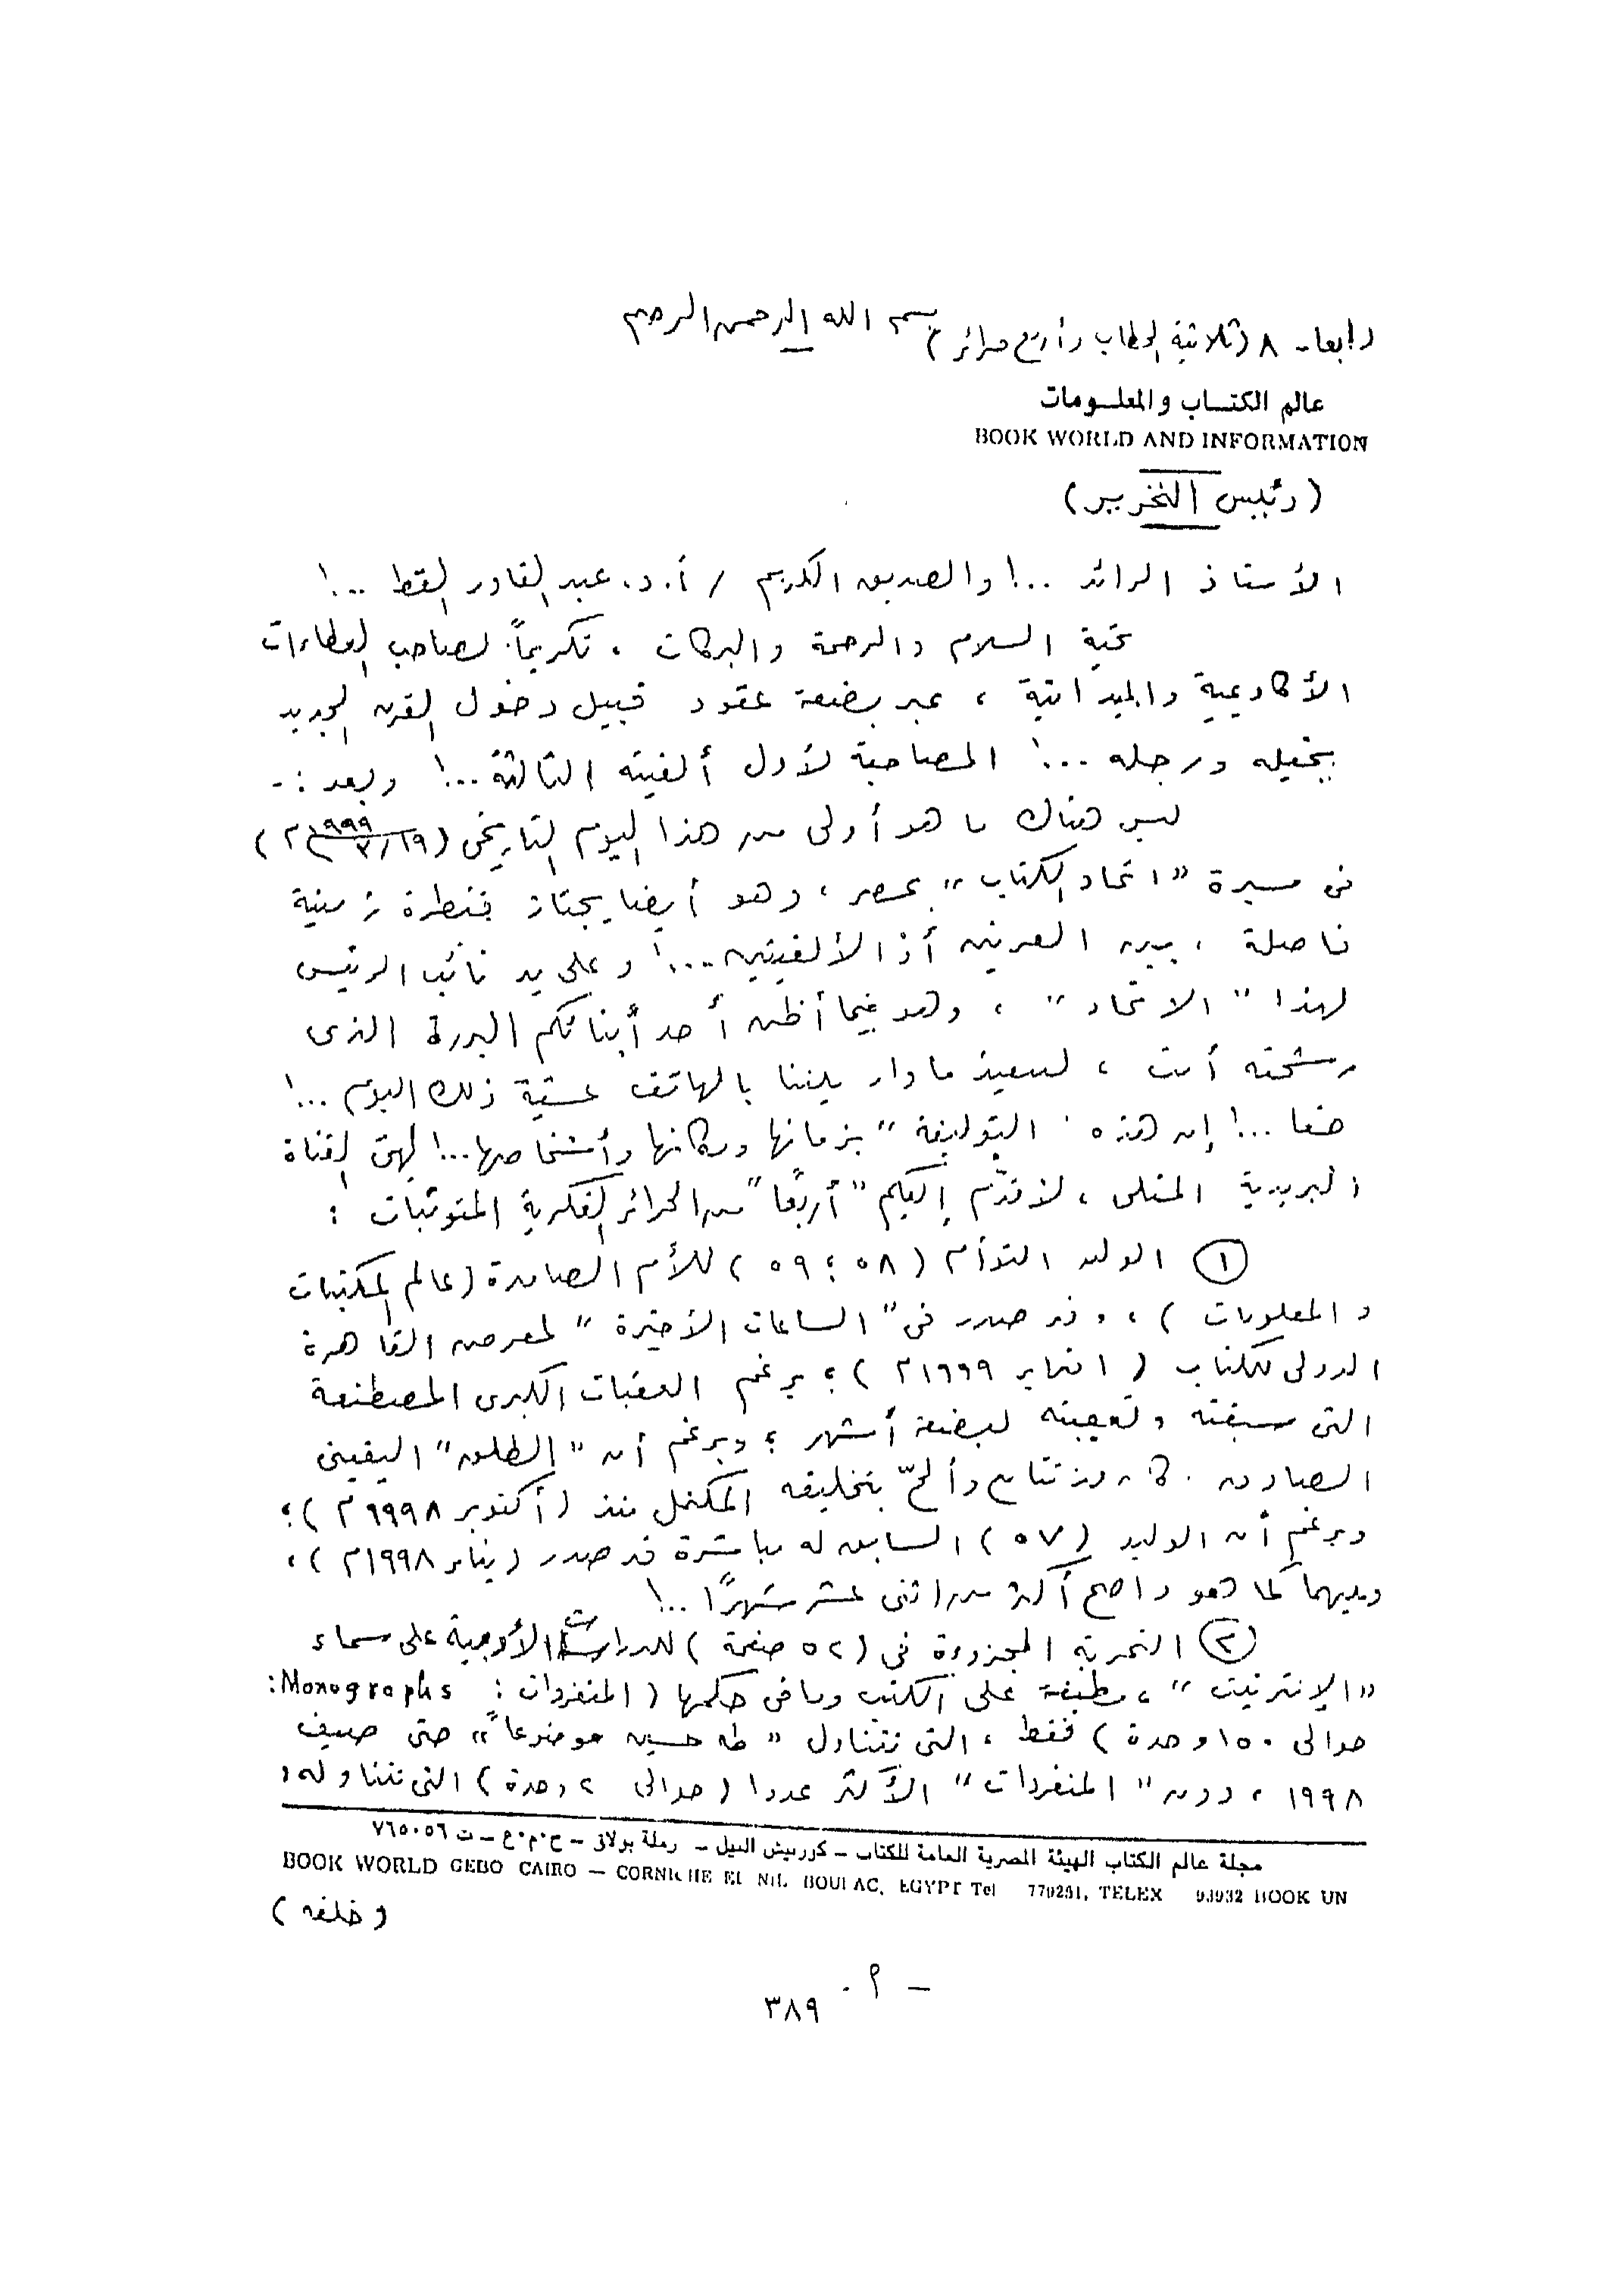 بسم الله الرحمن الرحيم
رابعا - ٨ (ثلاثية الخطاب وأربع حرائر)
عالم الكتاب والمعلومات
BOOK WORLD AND INFORMATION
(رئيس التحرير)
الأستاذ الرائد ..! والصديق الكريم / أ.د. عبد القادر القط ..!
تحية السلام والرحمة والبركات ، تكريماً لصاحب العطاءات
الأكاديمية والميدانية ، عبر بضعة عقود قبيل دخول القرن الجديد
بخيله ورجله ...! المصاحبة لأول ألفيته الثالثة ...! وبعد :-
ليس هناك ما هو أولى من هذا اليوم التاريخى (١٩/٣/١٩٩٩م)
فى مسيرة "اتحاد الكتاب" بمصر ، وهو أيضا يجتاز قنطرة زمنية
فاصلة ، بين القرنين أو الألفيتين ...! وعلى يد نائب الرئيس
لهذا "الاتحاد" ، وهو فيما أظن أحد أبنائكم البررة الذى
رشحته أنت ، لسعيد ما دار بيننا بالهاتف عشية ذلك اليوم ...!
حقا ...! إن هذه "التوليفة" بزمانها ومكانها وأشخاصها ...! لهى القناة
البريدية المثلى ، لأقدّم إليكم "أربعًا" من الحرائر الفكرية :
① الوليد التوأم (٥٨ ؛ ٥٩) للأم الصامدة (عالم المكتبات
والمعلومات) ، وقد صدر فى "الساعات الأخيرة" لمعرض القاهرة
الدولى للكتاب (فبراير ١٩٩٩م) ؛ برغم العقبات الكبرى المصطنعة
التى سبقته لبضعة أشهر ؛ وبرغم أن "الطلق" اليقينى
الصادق كان قد تتابع وألحّ بتخليقه المكتمل منذ (أكتوبر ١٩٩٨م) ؛
وبرغم أن الوليد (٥٧) السابق له مباشرة قد صدر (يناير ١٩٩٨م) ،
وبينهما كما هو واضح أكثر من اثنى عشر شهرًا ..!
② التجربة فى (٥٢ صفحة) للدراسات الأدبية على سماء
"الإنترنيت" ، مطبقة على الكتب وما فى حكمها (المنفردات : Monographs :
حوالى ١٥٠ وحدة) فقط ، التى تتناول "طه حسين موضوعاً" حتى صيف
١٩٩٨ ، دون "المنفردات" الأكثر عددا (حوالى ٢ وحدة) التى تتناوله
مجلة عالم الكتاب الهيئة المصرية العامة للكتاب - كورنيش النيل - رملة بولاق - ج.م.ع - ت ٧٦٥٠٥٦
BOOK WORLD GEBO CAIRO — CORNICHE EL NIL BOULAC, EGYPT Tel 779251, TELEX 93932 BOOK UN
(خلفه)
٣٨٩